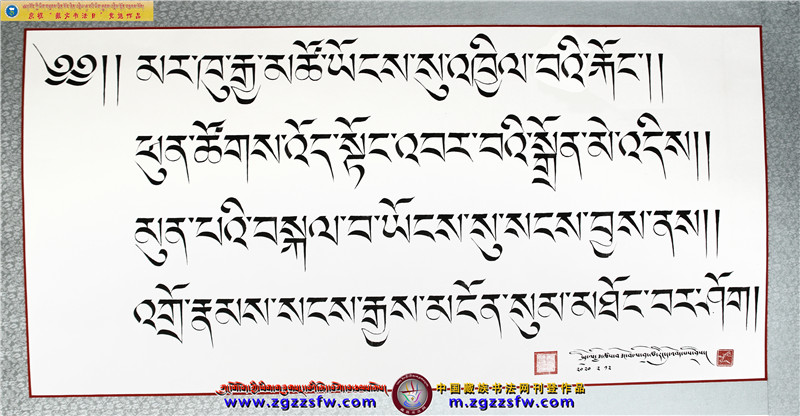 庆祝“藏文书法日”交流作品
༄༅།། མར་ཁུ་རྒྱ་མཚོ་ཡོངས་སུ་འཁྱིལ་བའི་རྐོང་།།
ཕུན་ཚོགས་འོད་སྟོང་འབར་བའི་སྒྲོན་མེ་འདིས།།
མུན་པའི་བསྐལ་བ་ཡོངས་སུ་སངས་བྱས་ནས།།
འགྲོ་རྣམས་སངས་རྒྱས་མངོན་སུམ་མཐོང་བར་ཤོག།
2020 2 12
中国藏族书法网刊登作品
www.zgzzsfw.com
m.zgzzsfw.com